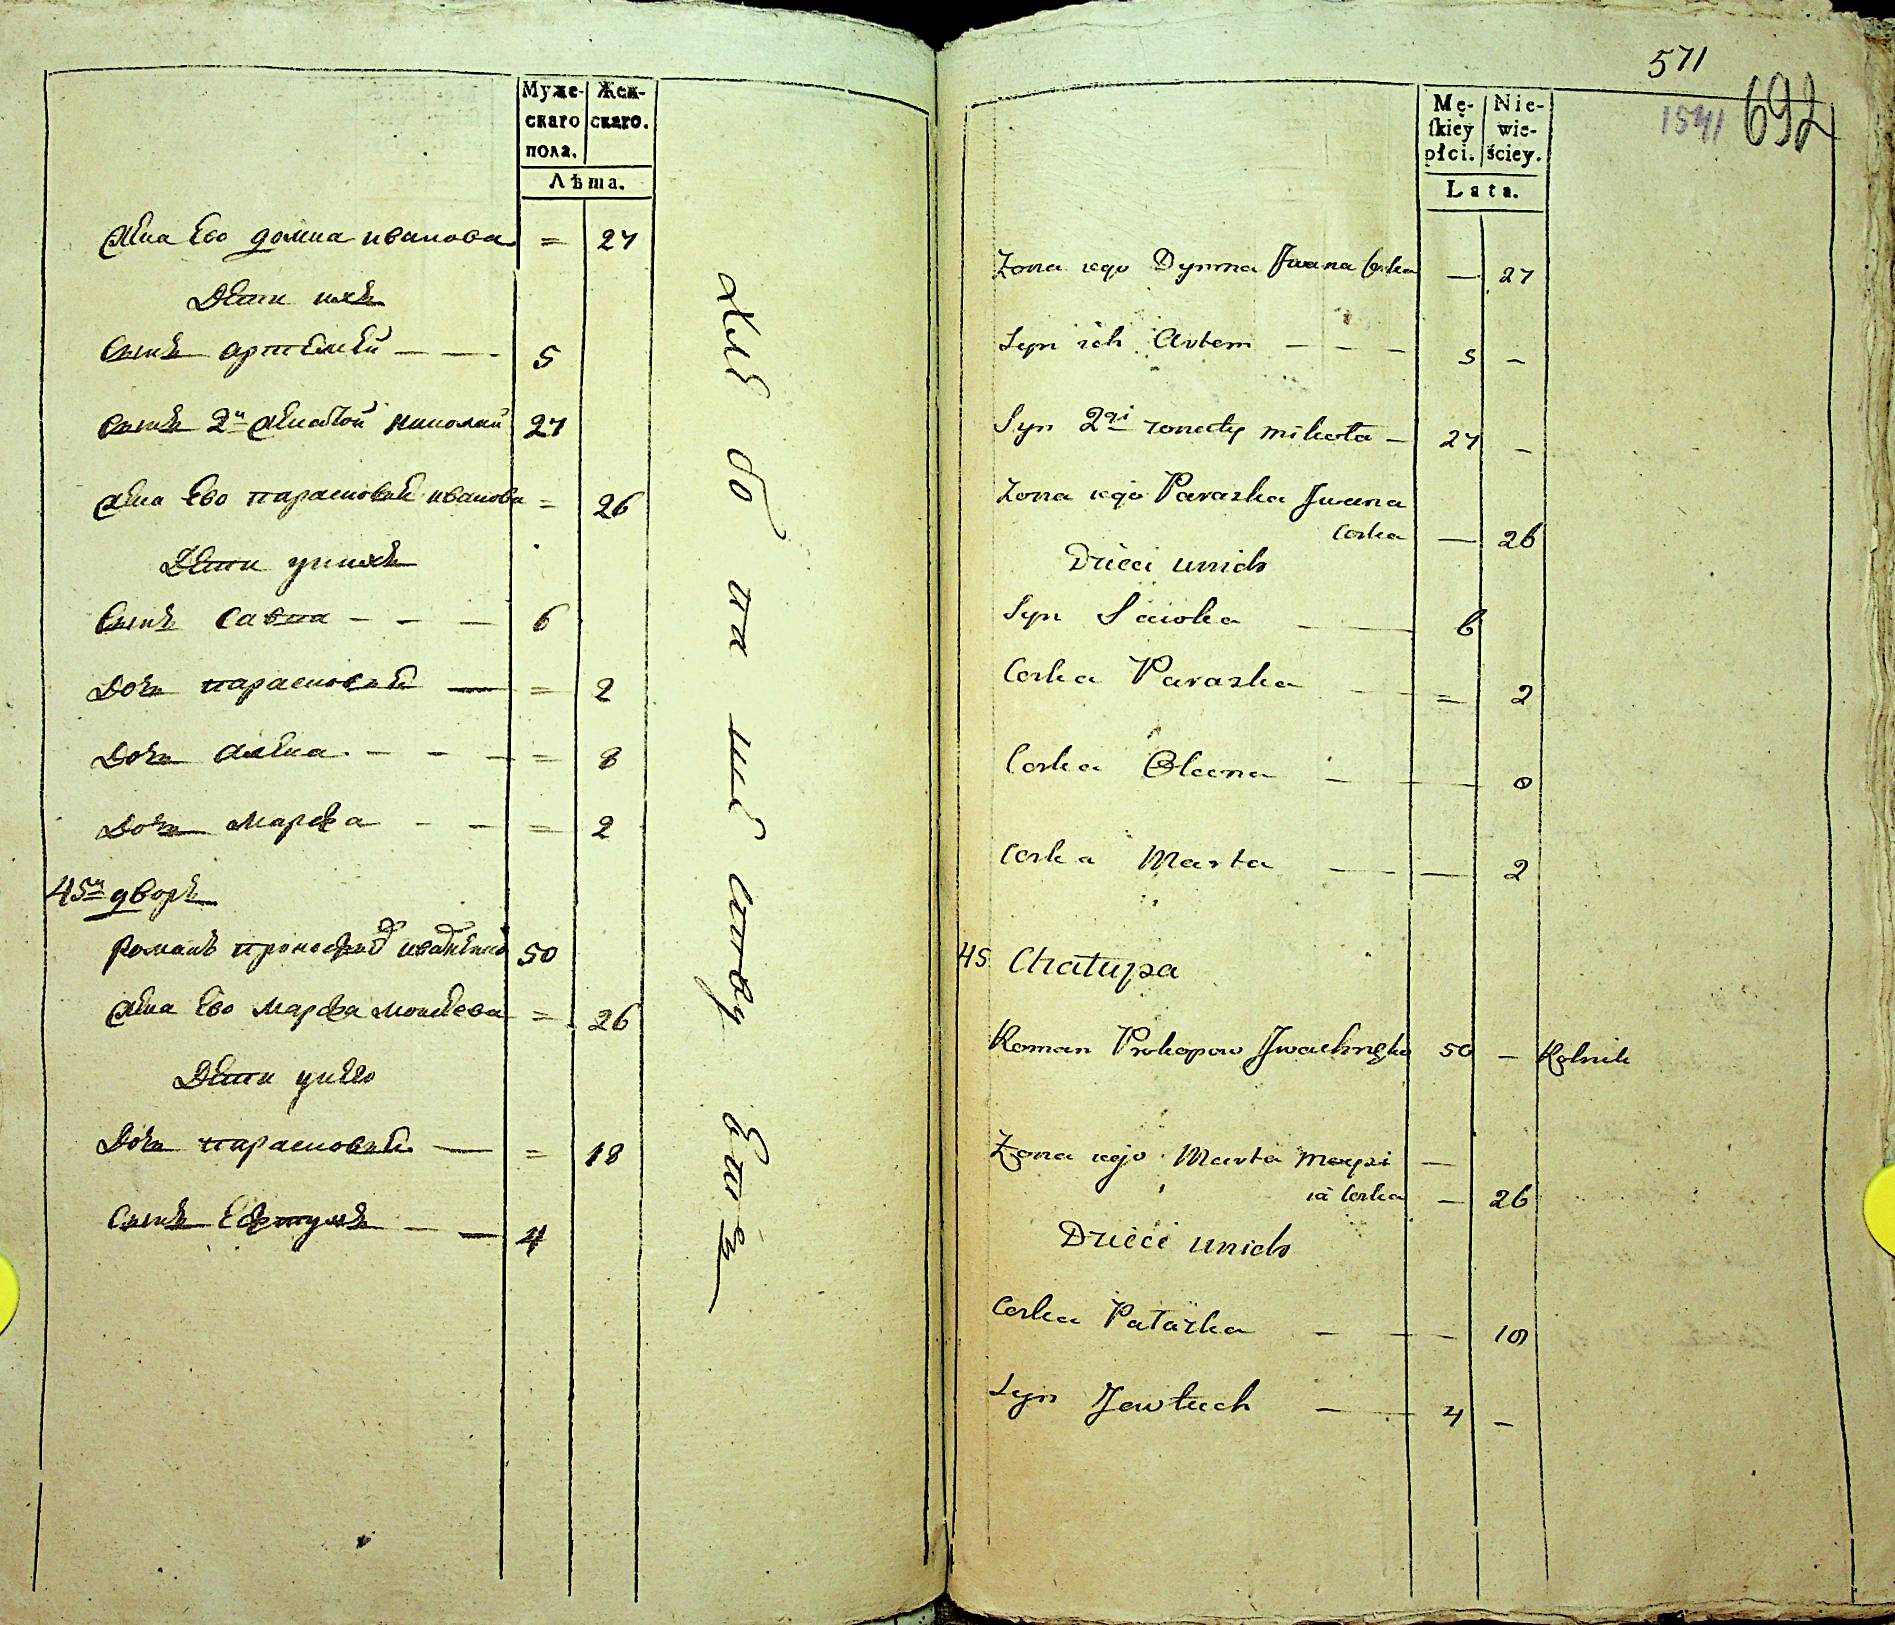 Муже-
скаго
пола.
Жен-
скаго.
Лѣта.
жена Ево домна иванова = 27
Дети ихъ
Сынъ артемей — — 5
Сынъ 2й женатой николай 27
жена Ево парасковея иванова = 26
Дети унихъ
Сынъ савка — — — 6
Дочь парасковея — = 2
Дочь алена — — — = 8
Дочь марфа — — = 2
45й дворъ
Романъ прокофиев 50
жена Ево марфа моисеева = 26
Дети унево
Дочь парасковея — = 18
Сынъ Ефтухъ — — 4
571
1541 692
Mę-
ſkiey
płci.
Nie-
wie-
ściey.
Lata.
Zona iego Dymna Jwana Corka — 27
Syn ich Artem — — — 5 —
Syn 2gi zonaty mikoła — 27 —
Zona iego Paraska Jwana
Corka — 26
Dzieci unich
Syn Sawka — — 6
Corka Paraska — = 2
Corka Oleena — — 8
Corka Marta — — 2
45 Chałupa
Roman Prokopow 50 — Rolnik
Zona iego Marta moyzi —
ia Corka — 26
Dzieci unich
Corka Pałaszka — — 18
Syn Jewtuch — 4 —